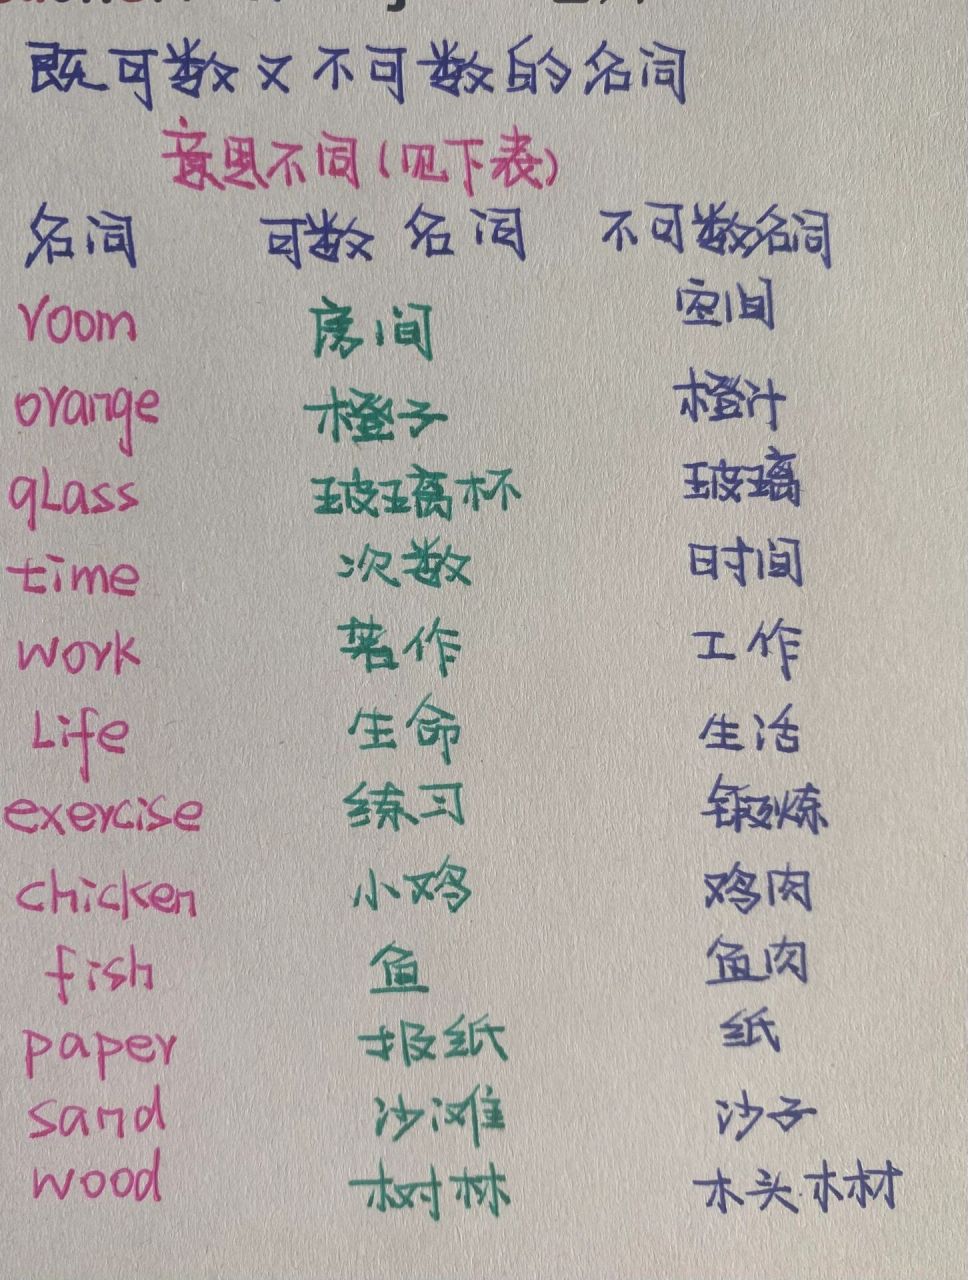 既可数又不可数的名词
意思不同(见下表)
名词 可数名词 不可数名词
room 房间 空间
orange 橙子 橙汁
glass 玻璃杯 玻璃
time 次数 时间
work 著作 工作
Life 生命 生活
exercise 练习 锻炼
chicken 小鸡 鸡肉
fish 鱼 鱼肉
paper 报纸 纸
sand 沙滩 沙子
wood 树林 木头.木材